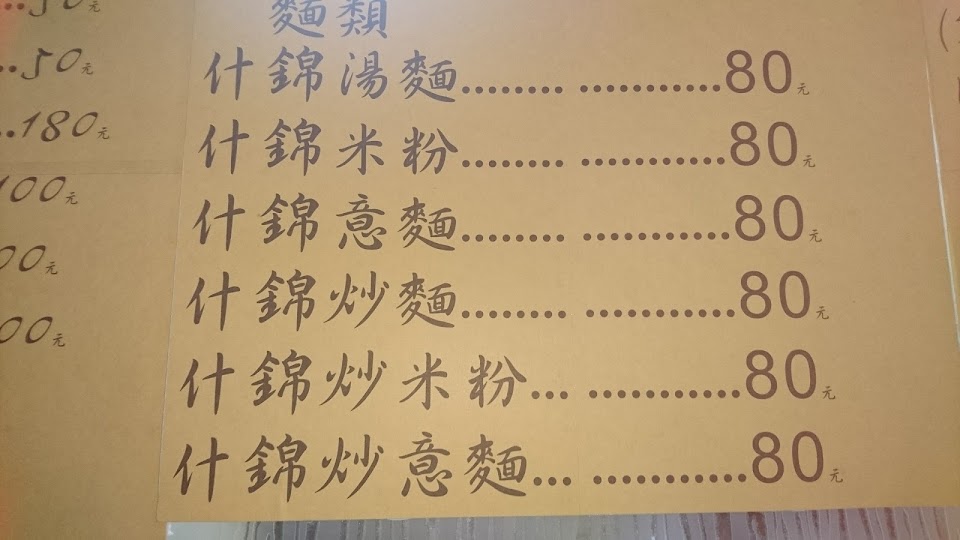 麵類
什錦湯麵........ ............80元
什錦米粉........ ............80元
什錦意麵........ ............80元
什錦炒麵........ ............80元
什錦炒米粉... ............80元
什錦炒意麵... ............80元
..50元
..50元
..180元
100元
00元
00元